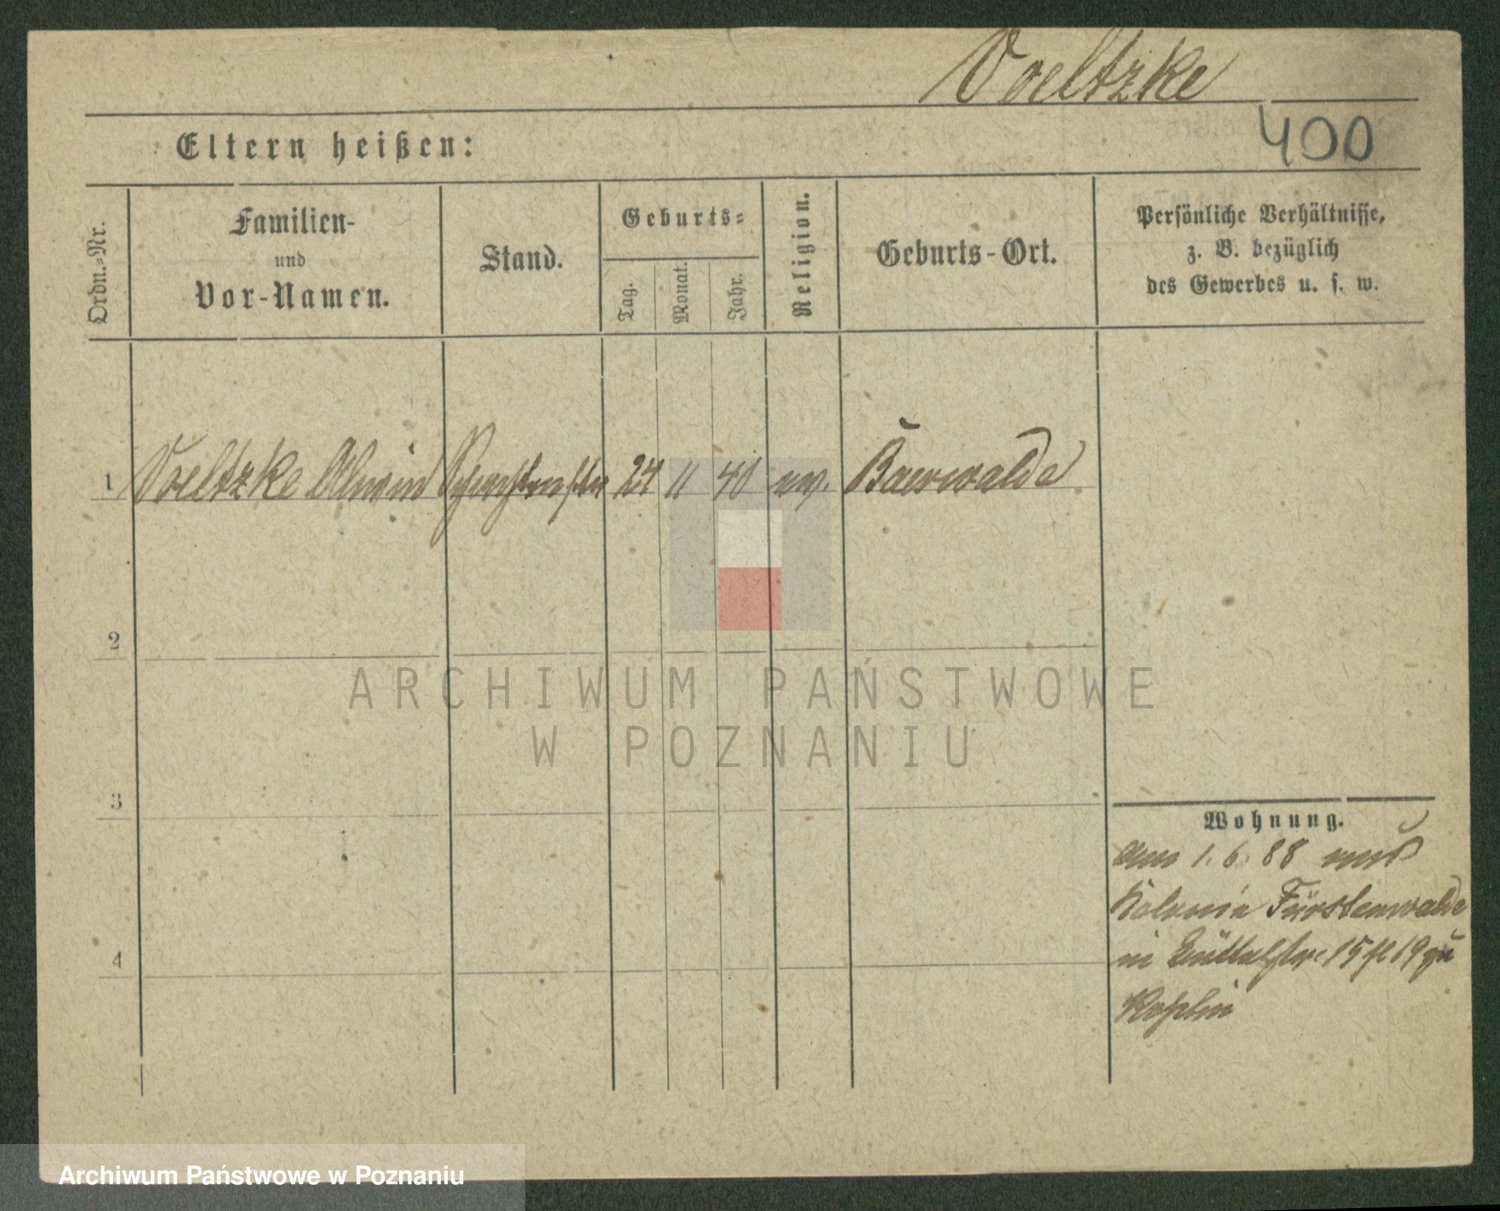 Voeltzke
400
Eltern heißen:
Ordn.-Nr.
Familien-
und
Vor-Namen.
Stand.
Geburts-
Tag.
Monat.
Jahr.
Religion.
Geburts-Ort.
Persönliche Verhältnisse,
z. B. bezüglich
des Gewerbes u. s. w.
1 Voeltzke Alwin 24 11 40 ev. Baerwalde
2
3
4
Wohnung.
am 1. 6. 88 aus
Kolonie Fürstenwalde
in 15 19 zu
ARCHIWUM PAŃSTWOWE
W POZNANIU
Archiwum Państwowe w Poznaniu